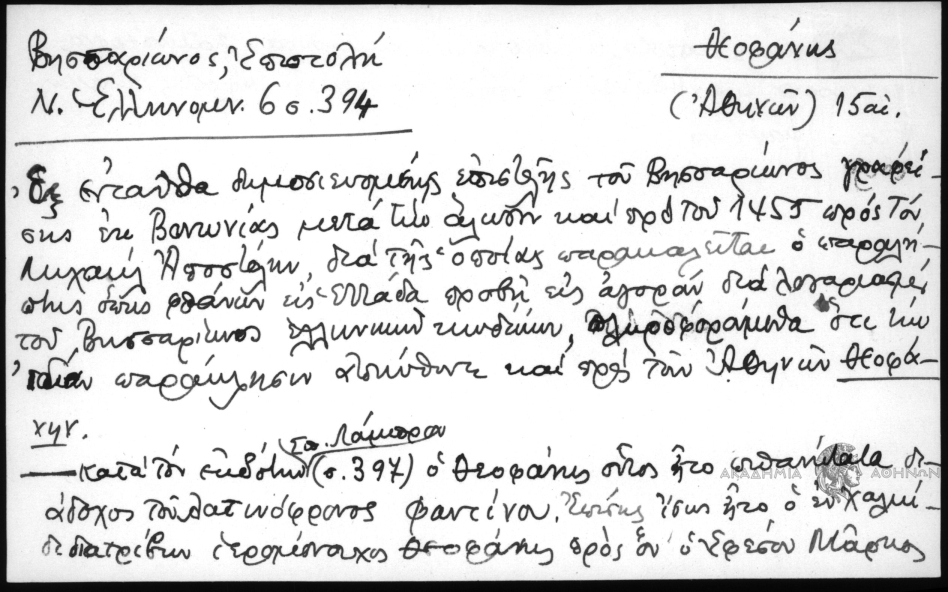 Βησσαρίωνος, Ἐπιστολή
Ν. Ἑλληνομν. 6 σ. 394
Θεοφάνης
(Ἀθηνῶν) 15 αἰ.
Ἐκ ἐνταῦθα δημοσιευομένης ἐπιστολῆς τοῦ Βησσαρίωνος γραφεί-
σης ἐκ Βονωνίας μετὰ τὴν ἅλωσιν καὶ πρὸ τοῦ 1455 πρὸς τὸν
Μιχαὴλ Ἀποστόλην, διὰ τῆς ὁποίας παρακαλεῖται ὁ παραλή-
πτης ὅπως φθάνων εἰς Ἑλλάδα προβῇ εἰς ἀγορὰν διὰ λογαριασμὸ
τοῦ Βησσαρίωνος ἑλληνικῶν κωδίκων, πληροφορούμεθα ὅτι τὴν
ἰδίαν παράκλησιν ἀπηύθυνε καὶ πρὸς τὸν Ἀθηνῶν Θεοφά-
νην.
— κατὰ τὸν ἐκδότην Σπ. Λάμπρον (σ. 397) ὁ Θεοφάνης οὗτος ἦτο πιθανώτατα δι-
άδοχος τοῦ λατινόφρονος Φαντίνου. Ἐπίσης ἴσως ἦτο ὁ ἐν Χαλκί-
δι διατρίβων ἱερομόναχος Θεοφάνης πρὸς ὃν ὁ Ἐφέσου Μᾶρκος
ΑΚΑΔΗΜΙΑ ΑΘΗΝΩΝ